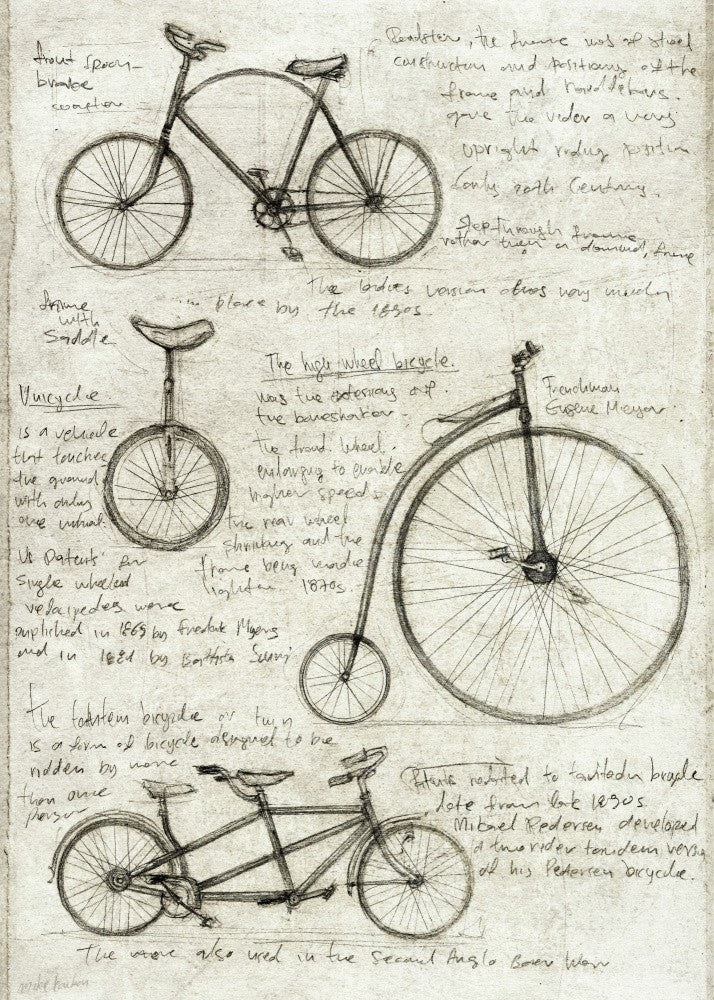 front spoon
brake
Roadster, the frame was of steel
construction and positions of the
frame and handlebars.
gave the rider a very
upright riding position
Early 20th Century.
Step-through frame
rather than a diamond, frame
the ladies version
in place by the 1890s.
frame
with
Saddle
Unicycle.
is a vehicle
that touches
the ground
with only
one wheel.
US Patents for
single wheeled
velocipedes were
published in 1869 by Frederick Myers
and in 1881 by Battista Scuri
The high-wheel bicycle.
was the extension of
the boneshaker.
the front wheel.
enlarging to enable
higher speeds
the rear wheel
shrinking and the
frame being made
lighter. 1870s.
Frenchman
Eugene Meyer
The tandem bicycle or twin
is a form of bicycle designed to be
ridden by more
than one
person
Patents related to tandem bicycle
date from late 1890s
Mikael Pedersen developed
a two rider tandem version
of his Pedersen bicycle.
The were also used in the Second Anglo Boer War